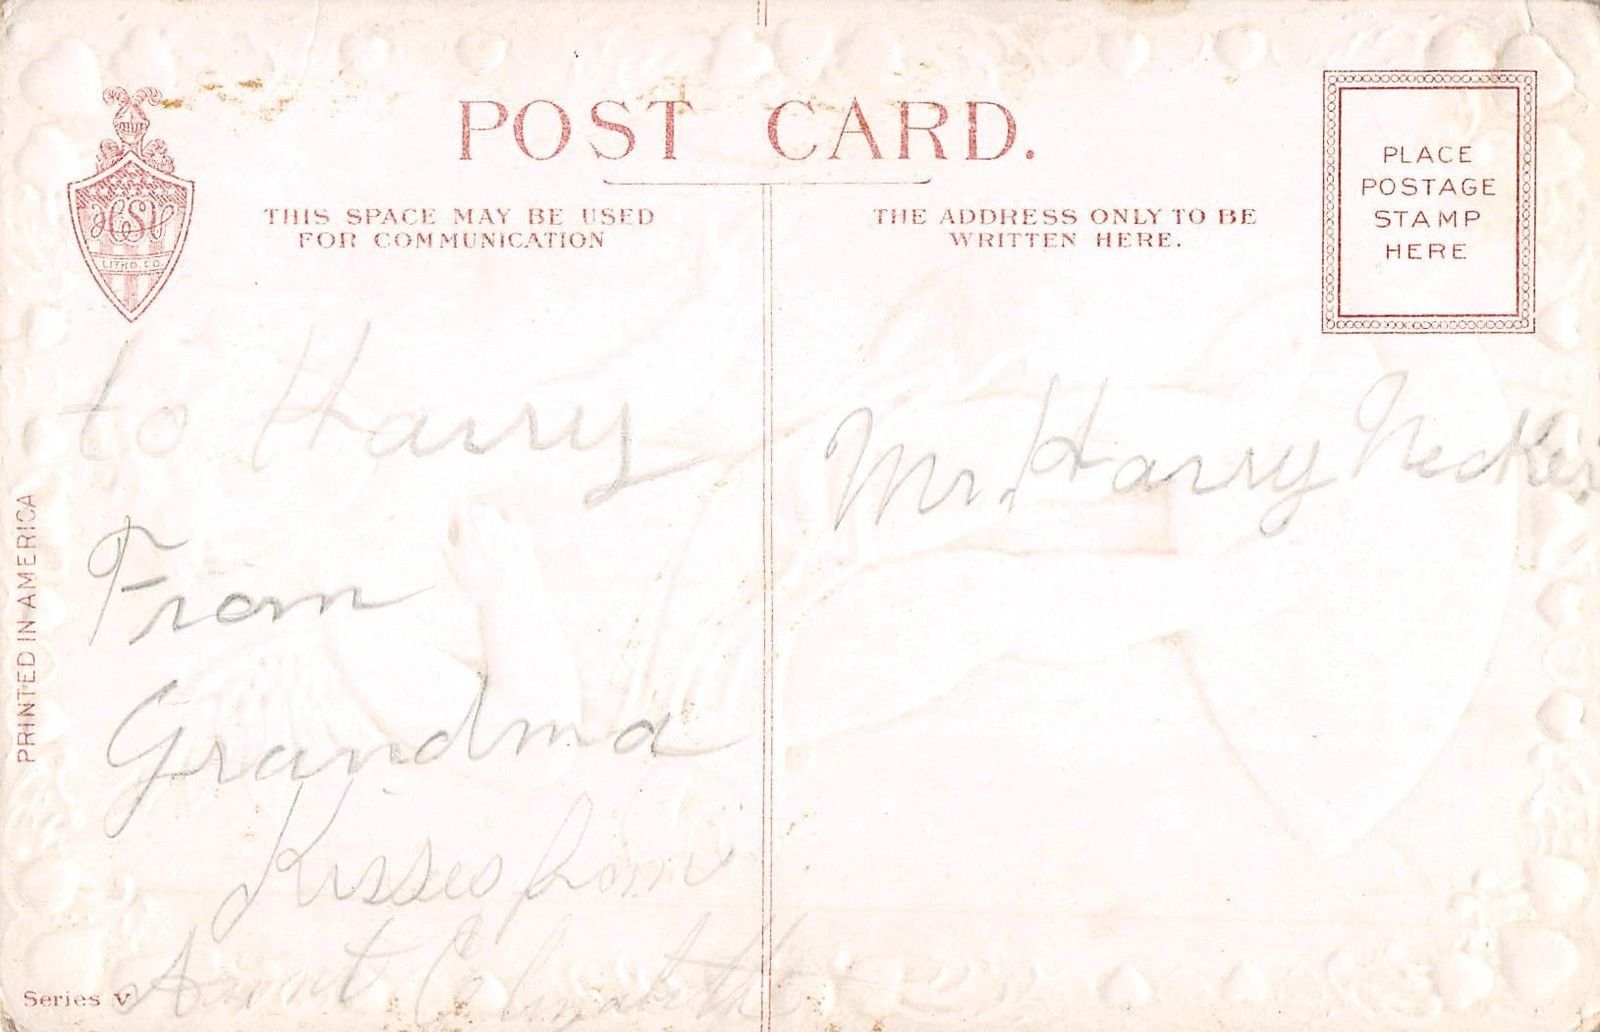 POST CARD.
THIS SPACE MAY BE USED
FOR COMMUNICATION
THE ADDRESS ONLY TO BE
WRITTEN HERE.
PLACE
POSTAGE
STAMP
HERE
HSV
LITHO. CO.
to Harry
From
Grandma
Kisses from
Aunt Elizabeth
Mr. Harry Necker
PRINTED IN AMERICA
Series V